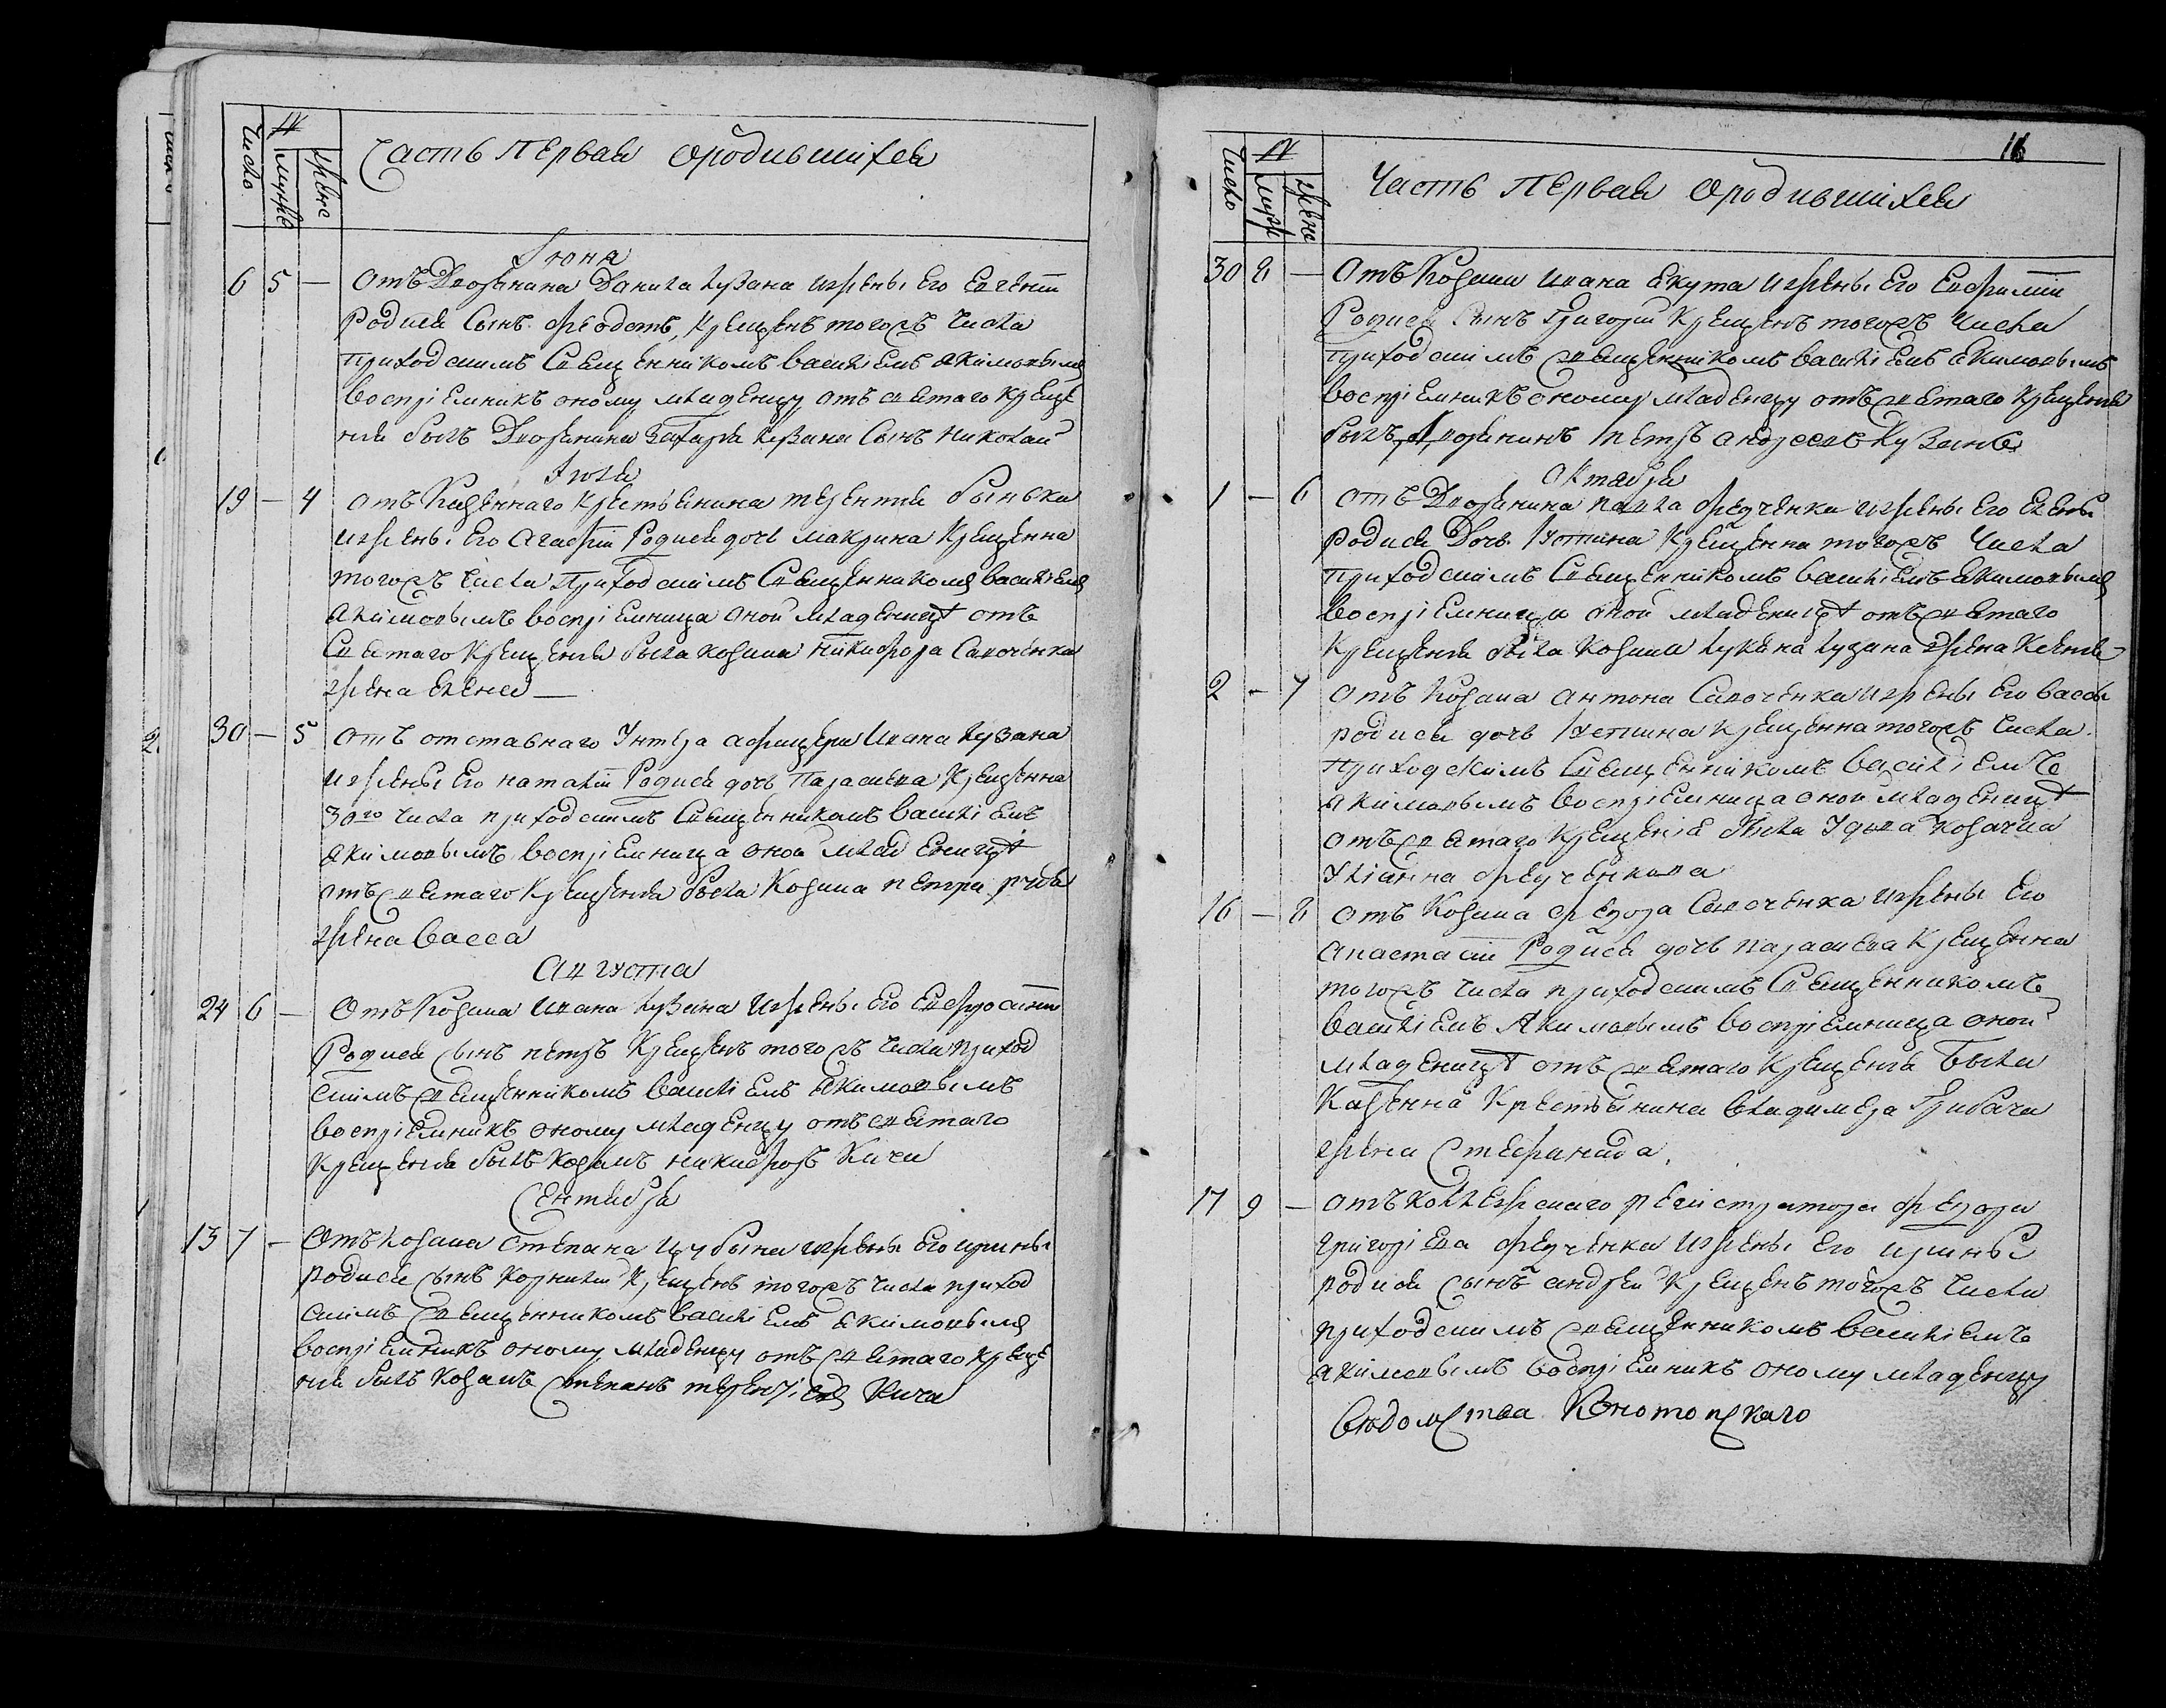 Число
№
муже
жене
Часть первая о родившихся
Июня
6 5 — отъ Дворянина Данила Кузана и жены его Евгении
родися сынъ Феодотъ, крещенъ того жъ числа
приходскимъ священникомъ Василіемъ Якимовымъ
воспріемникъ оному младенцу отъ святаго креще
нія былъ Дворянина Захарія Кузана сынъ Николай
Июля
19 — 4 отъ казеннаго крестьянина Терентія
и жены его Агафіи родися дочь Макрина крещенна
того жъ числа приходскимъ священникомъ Василіемъ
Якимовымъ воспріемница оной младеницѣ отъ
святаго крещенія была козака Никифора Савоченка
жена Елена —
30 — 5 отъ отставнаго унтера афицера Ивана Кузана
и жены его Наталіи родися дочь Параскева крещенна
30го числа приходскимъ священникомъ Василіемъ
Якимовымъ воспріемница оной младеницѣ
отъ святаго крещенія была козака Петра
жена Васса
Августа
24 6 — отъ козака Ивана Кузана и жены его Евфросиніи
родися сынъ Петръ крещенъ того жъ числа приход
скимъ священникомъ Василіемъ Якимовымъ
воспріемникъ оному младенцу отъ святаго
крещенія былъ козакъ Никифоръ Кича
Сентября
13 7 — отъ козака Степана Цубына и жены его Ирины
родися сынъ Корнилій крещенъ того жъ числа приход
скимъ священникомъ Василіемъ Якимовымъ
воспріемникъ оному младенцу отъ святаго креще
нія былъ козакъ Степанъ Терентіевъ Кича
16
Число
№
муже
жене
Часть первая о родившихся
30 8 — отъ козака Ивана Якута и жены его Евфиміи
родися сынъ Григорій крещенъ того жъ числа
приходскимъ священникомъ Василіемъ Якимовымъ
воспріемникъ оному младенцу отъ святаго крещенія
былъ Дворянинъ Петръ Андреевъ Кузанъ
Октября
1 — 6 отъ Дворянина Павла Федченка и жены его Елены
родися дочь Устина крещенна того жъ числа
приходскимъ священникомъ Василіемъ Якимовымъ
воспріемница оной младеницѣ отъ святаго
крещенія была козака Лукяна Кузана жена Ксенія
2 — 7 отъ козака Антона Савоченка и жены его Вассы
родися дочь Устина крещенна того жъ числа
приходскимъ священникомъ Василіемъ
Якимовымъ воспріемница оной младеницѣ
отъ святаго крещенія была удова козачка
Уліанна Федченкова
16 — 8 отъ козака Федора Савоченка и жены его
Анастасіи родися дочь Параскева крещенна
того жъ числа приходскимъ священникомъ
Василіемъ Якимовымъ воспріемница оной
младеницѣ отъ святаго крещенія была
казенна крестьянина Владимера Грибача
жена Стефанида.
17 9 — отъ коллежскаго регистратора Федора
Григоріева Федченка и жены его Ирины
родися сынъ Андрей крещенъ того жъ числа
приходскимъ священникомъ Василіемъ
Якимовымъ воспріемникъ оному младенцу
вѣдомства Конотопскаго